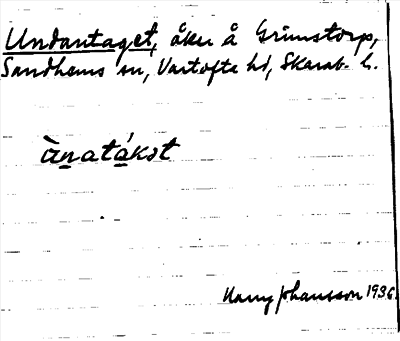 Undantaget, åker å Grimstorp,
Sandhems sn, Vartofta hd, Skarab. l.
ànatákst
Harry Johansson 1936.